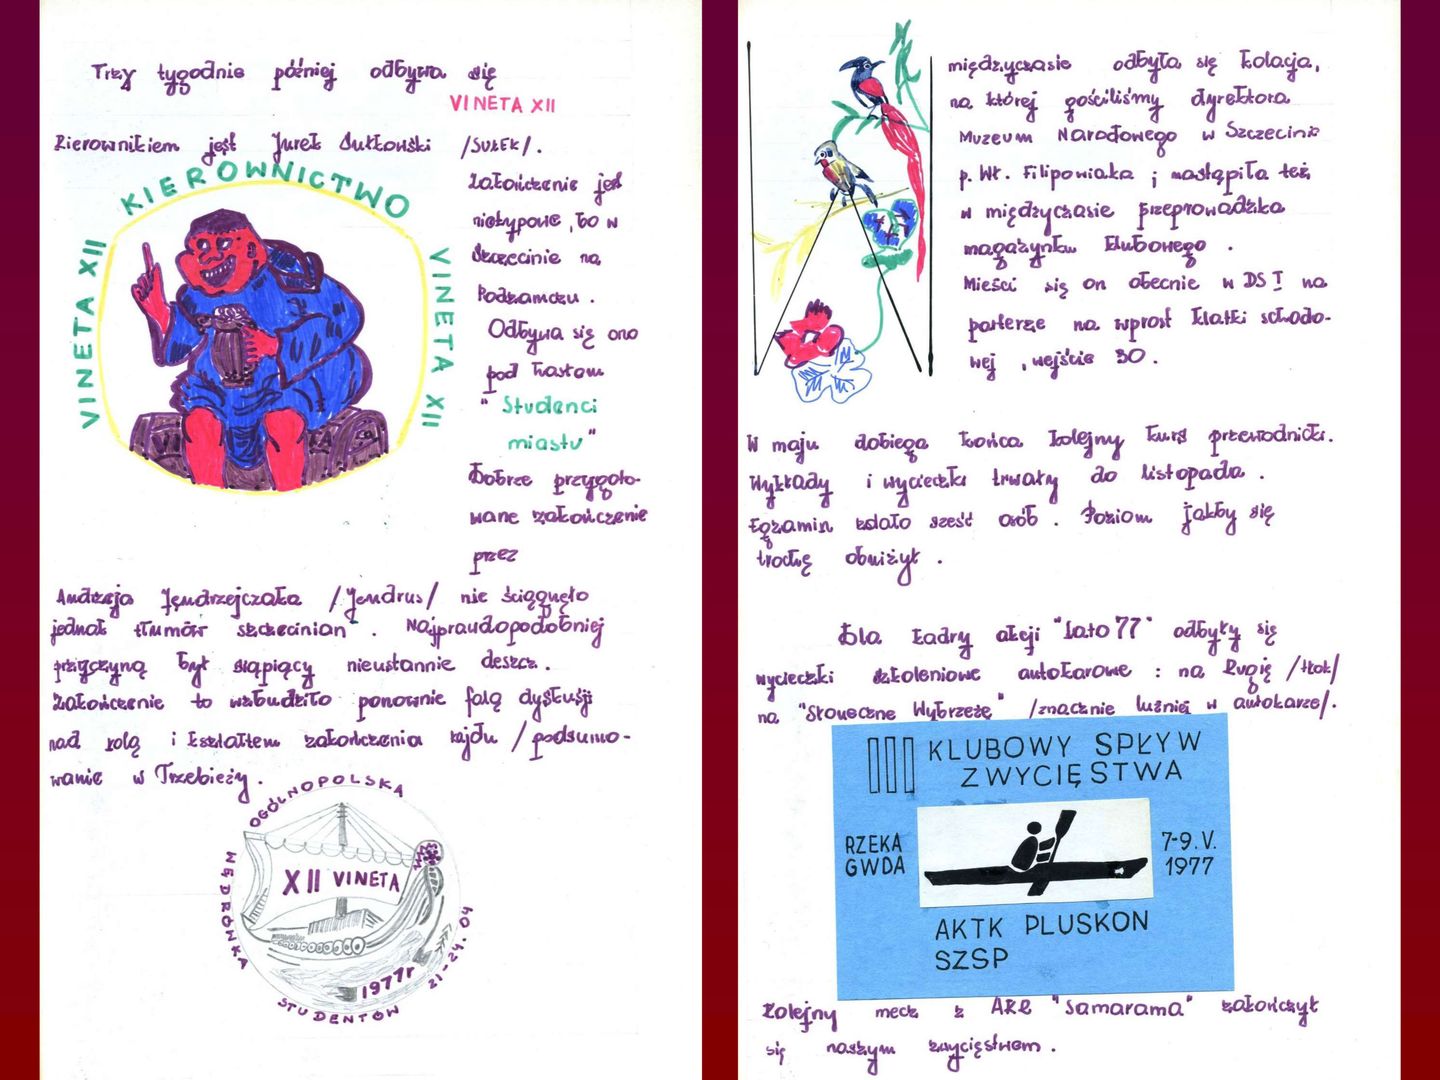 Trzy tygodnie później odbywa się
VINETA XII
Kierownikiem jest Jurek Sułkowski /SUŁEK/.
KIEROWNICTWO
VINETA XII
VINETA XII
Zakończenie jest
nietypowe, bo w
Szczecinie na
Podzamczu.
Odbywa się ono
pod hasłem
"Studenci
miastu"
Dobrze przygoto-
wane zakończenie
przez
Andrzeja Jendrzejczaka /Jendrus/ nie ściągnęło
jednak tłumów szczecinian. Najprawdopodobniej
przyczyną był siąpiący nieustannie deszcz.
Zakończenie to wzbudziło ponownie falę dyskusji
nad rolą i kształtem zakończenia rajdu /podsumo-
wanie w Trzebieży.
OGÓLNOPOLSKA
WĘDRÓWKA
STUDENTÓW
21-24.04
XII VINETA
1977r
międzyczasie odbyła się kolacja,
na której gościliśmy dyrektora
Muzeum Narodowego w Szczecinie
p. Wł. Filipowiaka i nastąpiła też
w międzyczasie przeprowadzka
magazynku klubowego.
Mieści się on obecnie w DS I na
parterze na wprost klatki schodo-
wej, wejście 30.
W maju dobiega końca kolejny kurs przewodnicki.
Wykłady i wycieczki trwały do listopada.
Egzamin zdało sześć osób. Poziom jakby się
trochę obniżył.
Dla kadry akcji "Lato 77" odbyły się
wycieczki szkoleniowe autokarowe: na Rugię /tłok/
na "Słoneczne Wybrzeże" /znacznie luźniej w autokarze/.
III KLUBOWY SPŁYW
ZWYCIĘSTWA
RZEKA
GWDA
7-9.V.
1977
AKTK PLUSKON
SZSP
Kolejny mecz z AKR "Samarama" zakończył
się naszym zwycięstwem.